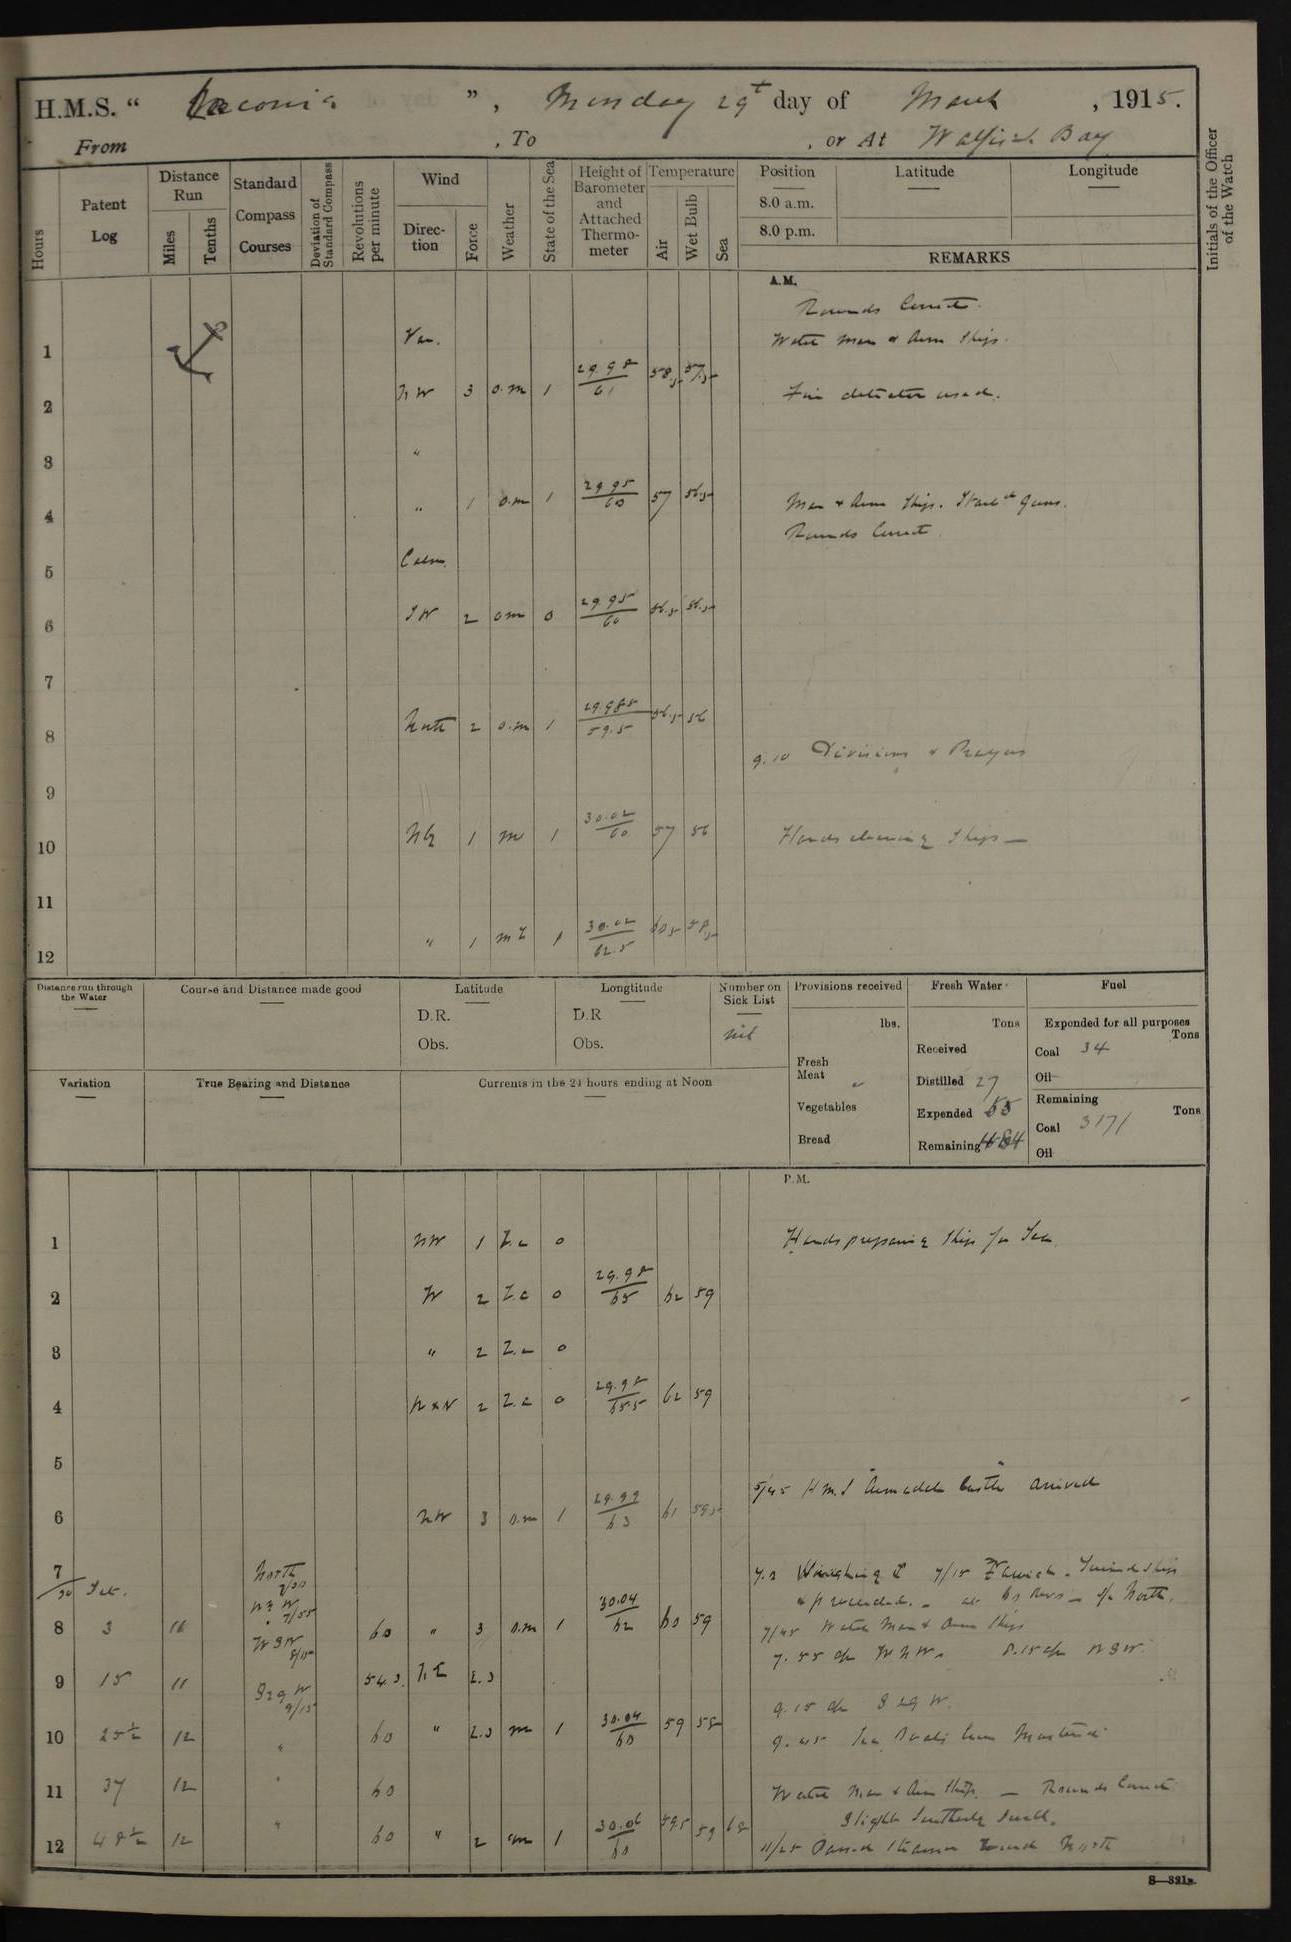 H.M.S. “ Laconia ”, Monday 29th day of March, 1915.
From , To , or At Walfish Bay
Hours
Patent Log
Distance Run
Miles
Tenths
Standard Compass Courses
Deviation of Standard Compass
Revolutions per minute
Wind
Direction
Force
Weather
State of the Sea
Height of Barometer and Attached Thermometer
Temperature
Air
Wet Bulb
Sea
Position
8.0 a.m.
8.0 p.m.
Latitude
Longitude
REMARKS
Initials of the Officer of the Watch
A.M.
Rounds Correct
1 Var. Watch man & arm Ships.
2 NW 3 o.m 1 29.98 61 58.5 57.5 Fire detector used.
3 "
4 " 1 o.m 1 29.95 60 57 56.5 Man & Arm Ships. Starbd Guns.
Rounds Correct
5 Calm
6 SW 2 om 0 29.95 60 56.5 56.5
7
8 North 2 o.m 1 29.985 59.5 56.5 56
9.10 Divisions & Prayers
9
10 1 m 1 30.02 60 57 56 Hands cleaning Ships —
11
12 " 1 mz 1 30.02 62.5 60.5 58.5
Distance run through the Water
Course and Distance made good
Latitude
D.R.
Obs.
Longtitude
D.R
Obs.
Number on Sick List
nil
Provisions received
lbs.
Fresh Meat
Vegetables
Bread
Fresh Water
Tons
Received
Distilled 27
Expended 55
Remaining 484
Fuel
Expended for all purposes
Tons
Coal 34
Oil
Remaining
Tons
Coal 3171
Oil
Variation
True Bearing and Distance
Currents in the 24 hours ending at Noon
P.M.
1 NW 1 Z.c 0 Hands preparing Ship for Sea
2 W 2 Z.c 0 29.98 65 62 59
3 " 2 Z.c 0
4 WxN 2 Z.c 0 29.98 65.5 62 59
5
5/45 H.M.S "Armadale Castle" arrived
6 NW 3 o.m 1 29.99 63 61 59.5
7 North
& proceeded. — — S/c North.
8 3 60 " 3 o.m 1 30.04 62 60 59 7/45 Watch Man & Arm Ships
7.55 WNW.
9 15 11 54.3
9.15
10 25½ 12 " 60 " 2.3 m 1 30.04 60 59 58 9.45 Sea Boats Crew Mustered
11 37 12 " 60 Watch Man & Arm Ships — Rounds Correct
Slight Southerly Swell.
12 48½ 12 " 60 " 2 om 1 30.06 60 59.5 59 11/25 Passed Steamer bound North
S—321a.